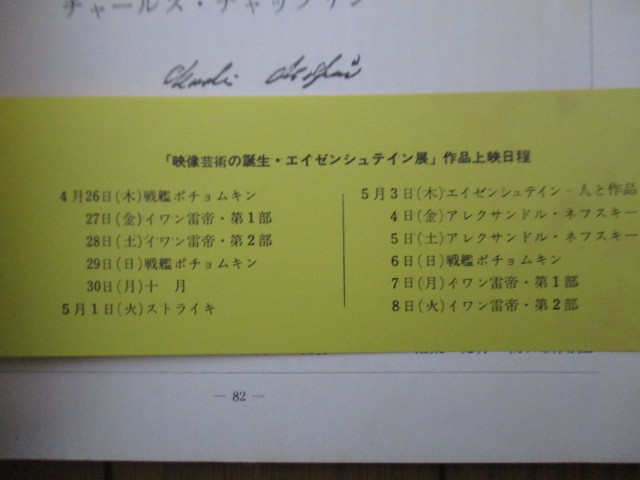 チャールズ・チャップリン
「映像芸術の誕生・エイゼンシュテイン展」作品上映日程
4月26日(木)戦艦ポチョムキン
27日(金)イワン雷帝・第1部
28日(土)イワン雷帝・第2部
29日(日)戦艦ポチョムキン
30日(月)十 月
5月1日(火)ストライキ
5月3日(木)エイゼンシュテイン-人と作品
4日(金)アレクサンドル・ネフスキー
5日(土)アレクサンドル・ネフスキー
6日(日)戦艦ポチョムキン
7日(月)イワン雷帝・第1部
8日(火)イワン雷帝・第2部
— 82 —